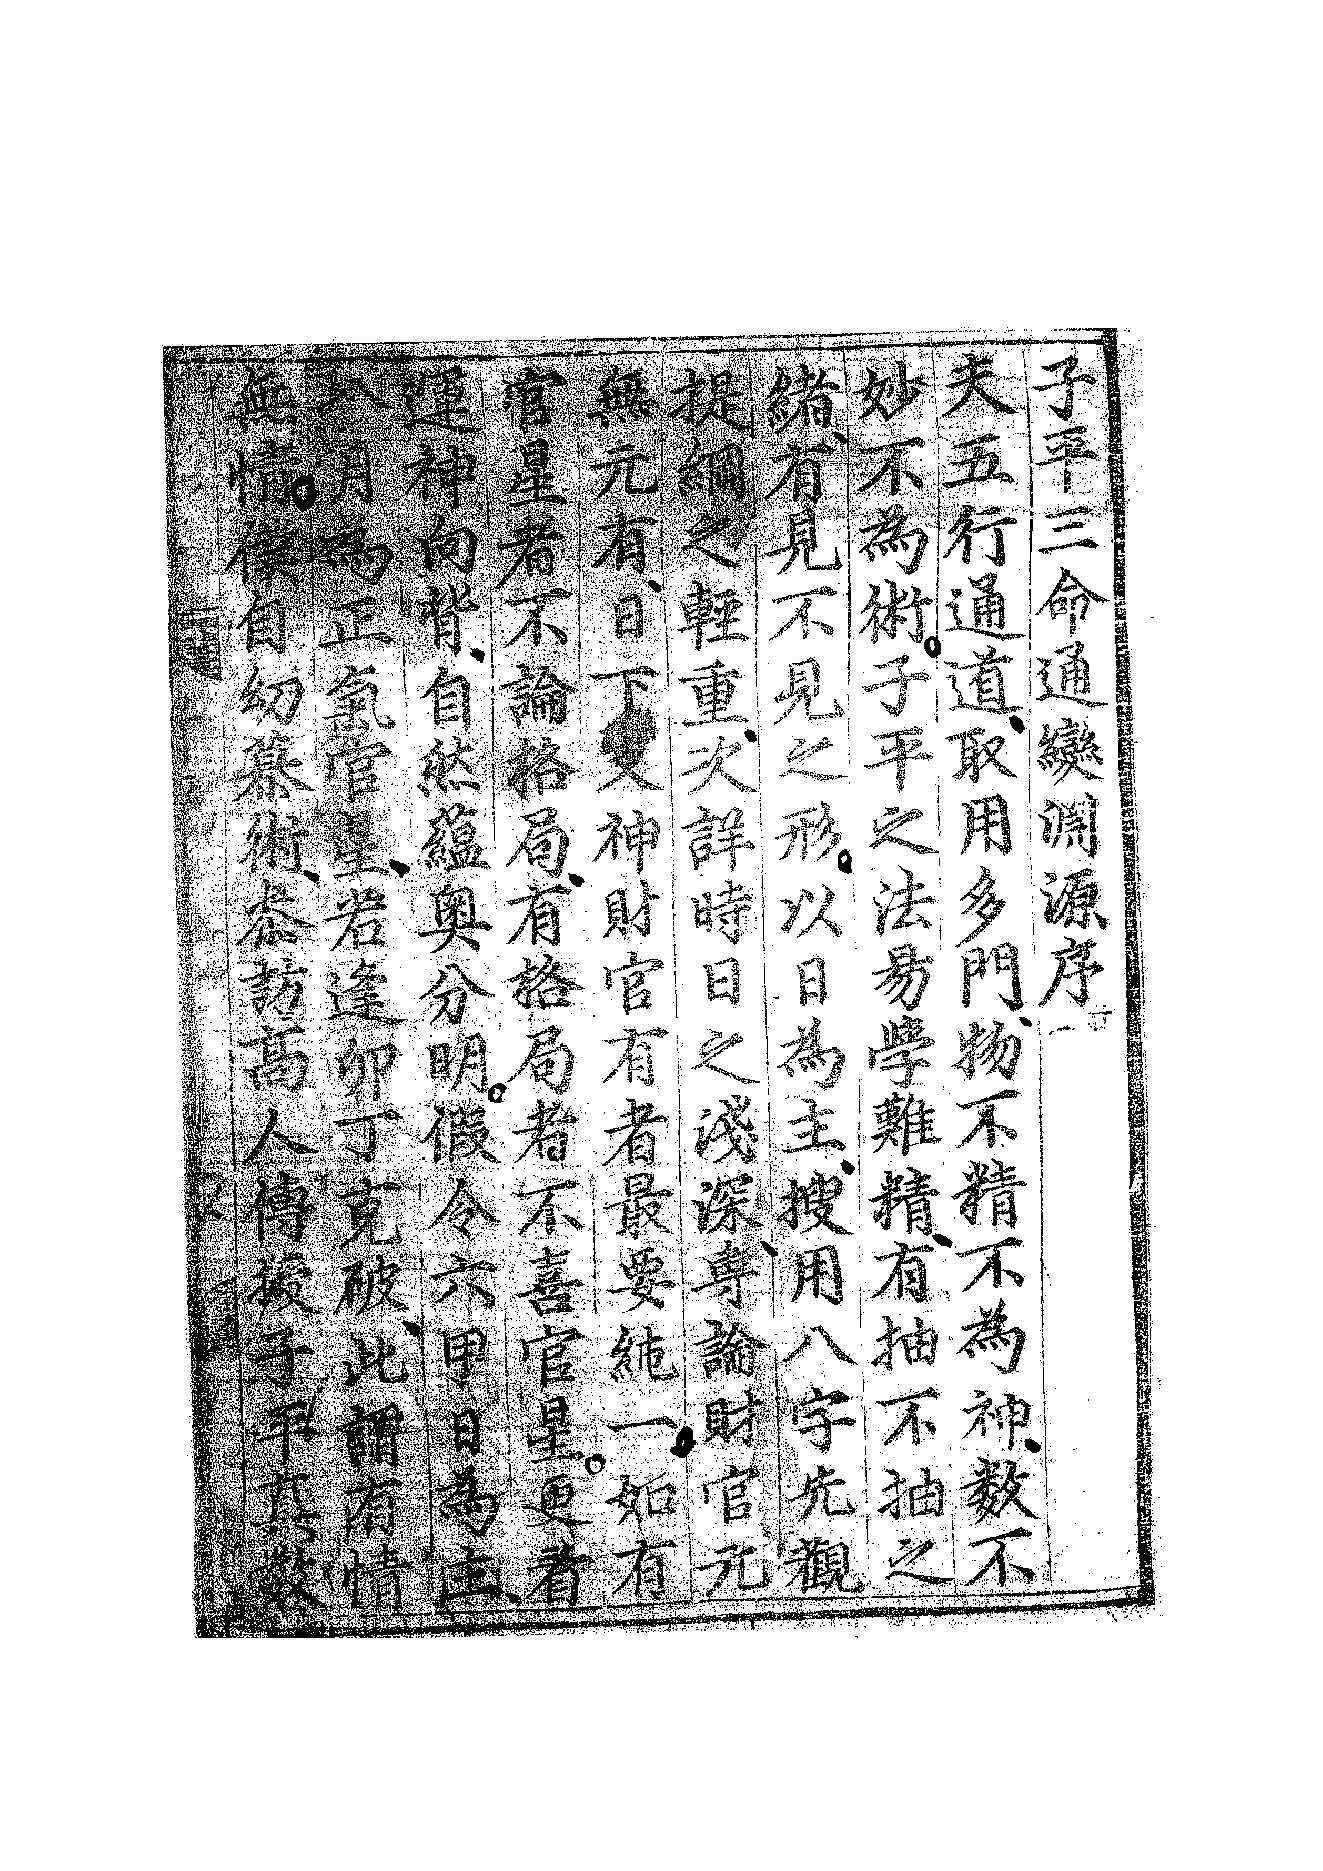 子平三命通變淵源序
夫五行通道取用多門物不精不為神数不
妙不為術子平之法易學難精有抽不抽之
緒有見不見之形以日為主搜用八字先觀
提綱之輕重次詳時日之淺深專論財官元
無元有日下又神財官有者最要純一姤有
官星者不論格局有格局者不喜官星更看
運神向背自然蘊奥分明假令六甲日為主
八月為正氣官星若逢卯丁克破此謂有情
無情僕自幼慕術叅訪髙人傳授子平真数